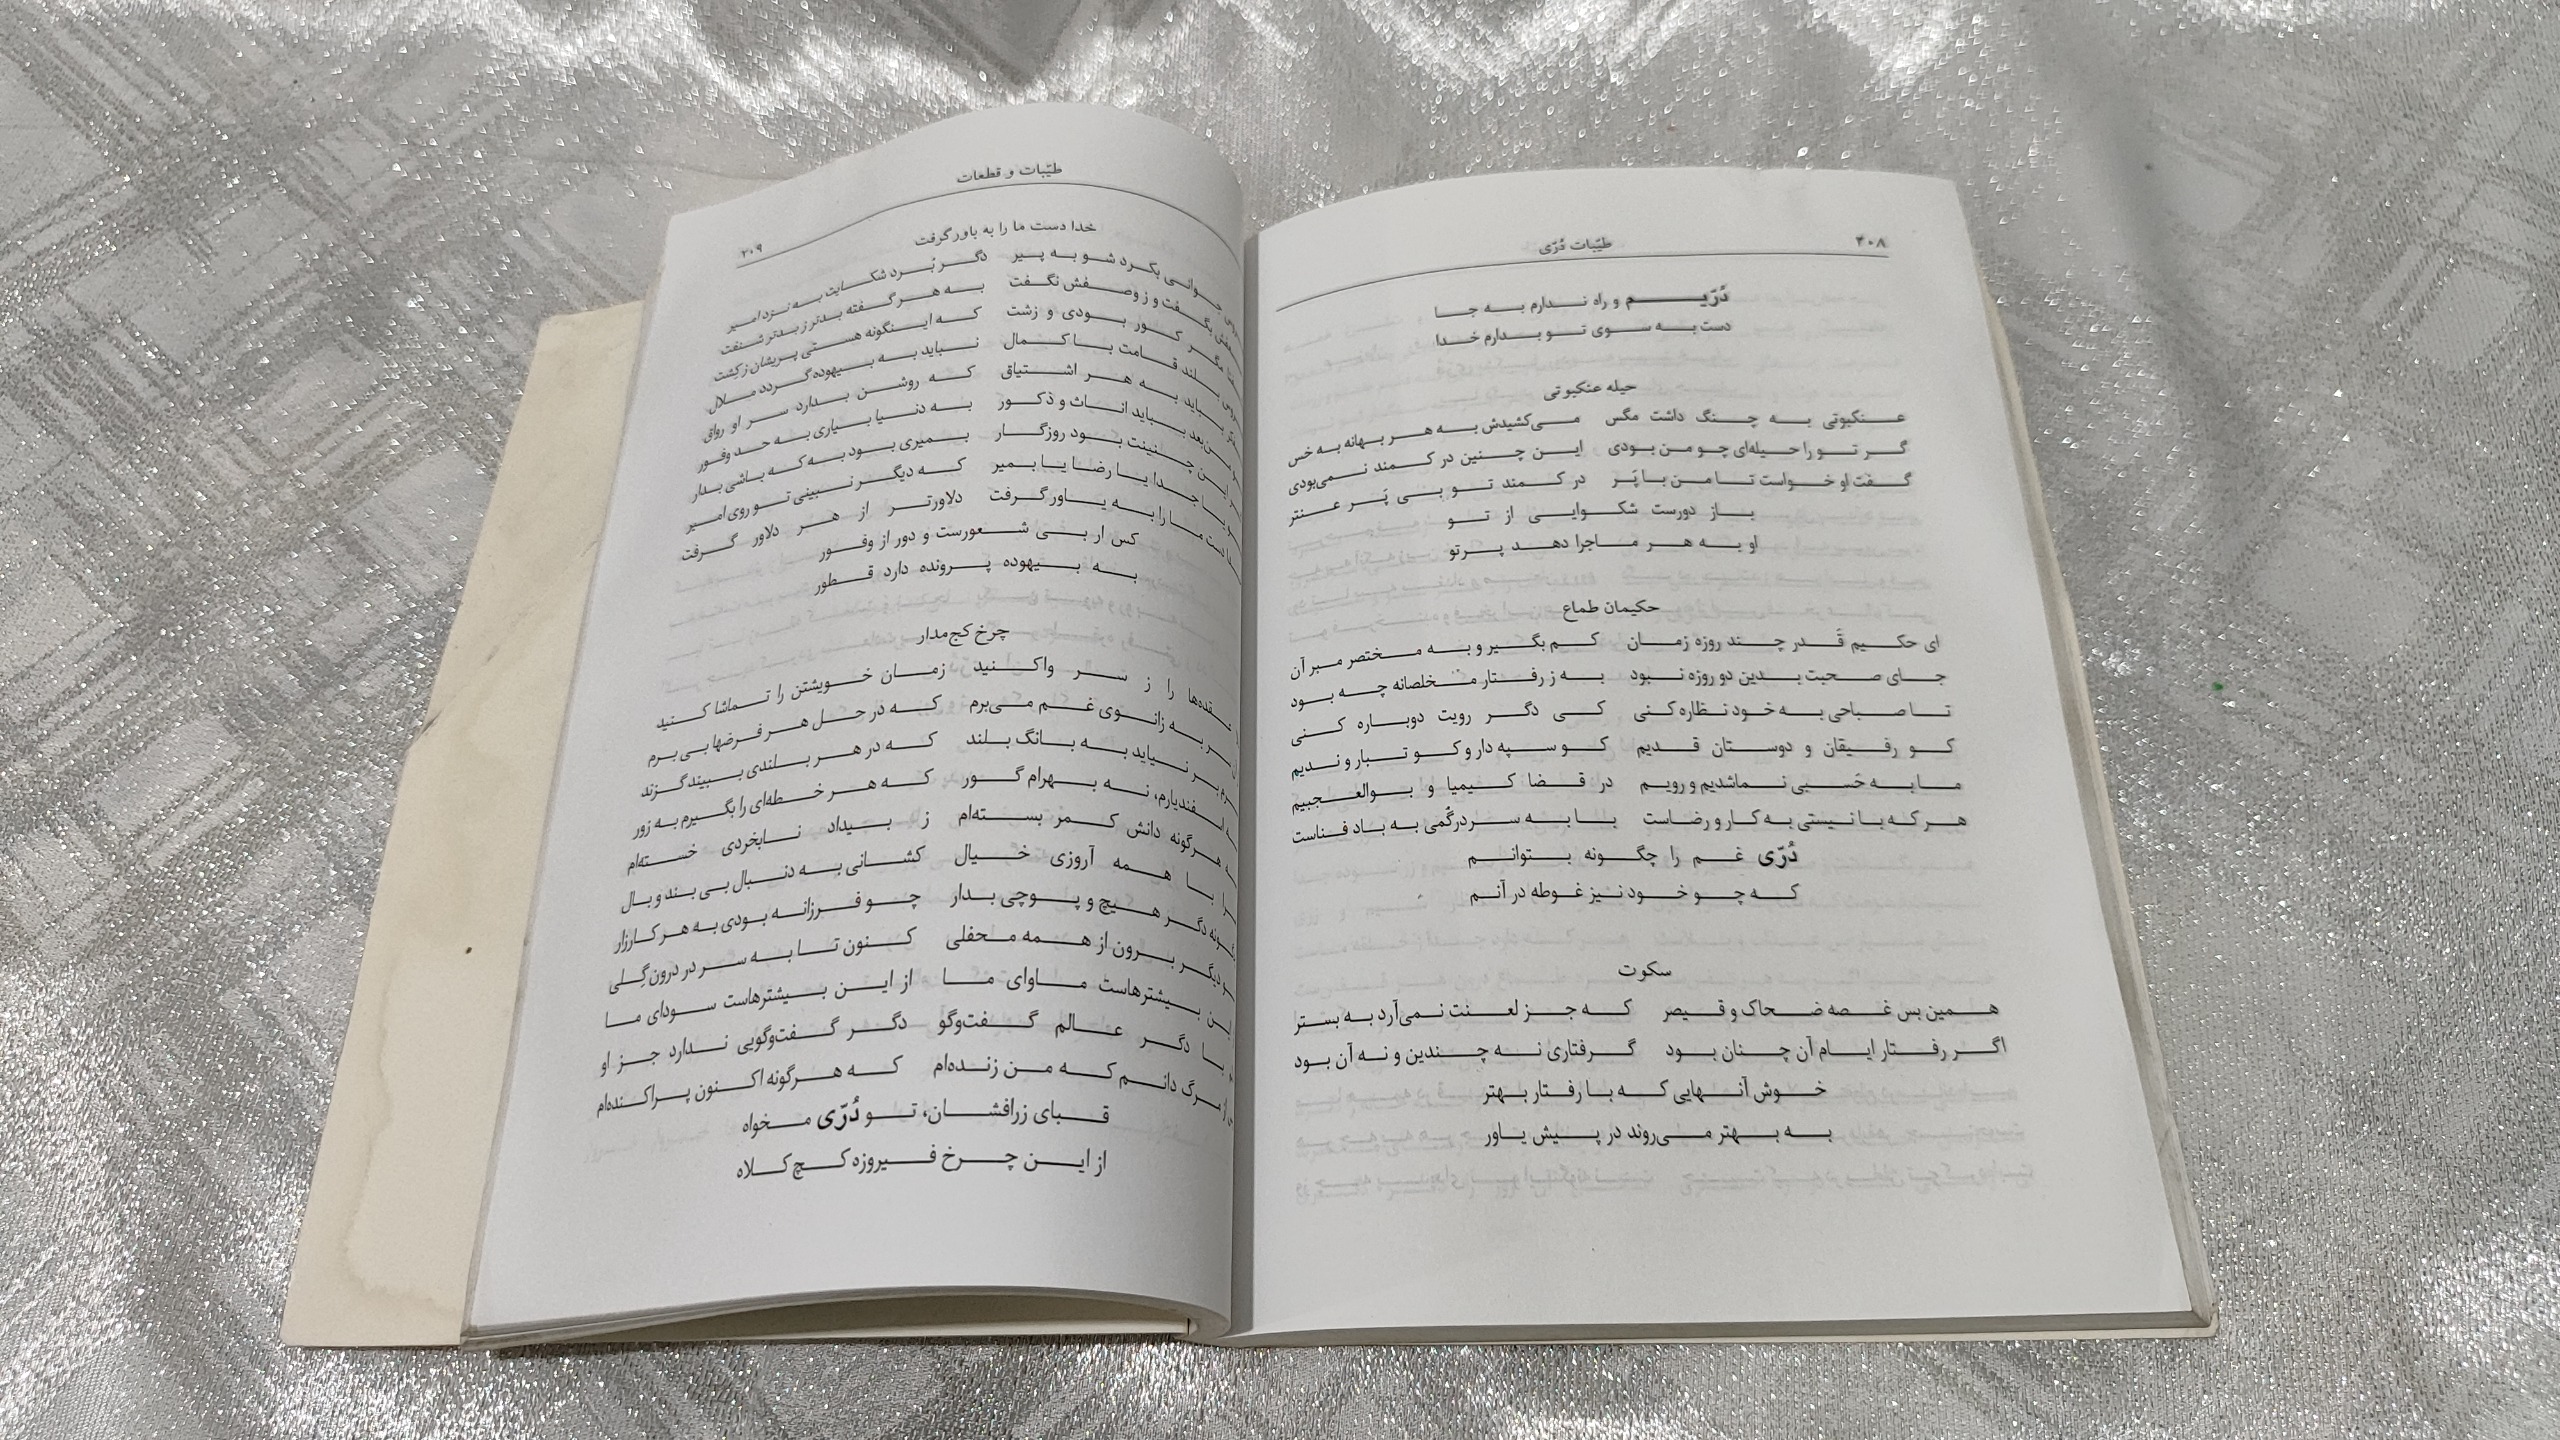 ۴۰۸
طیّبات دُرّی
دُرّیم و راه ندارم به جا
دست به سوی تو بدارم خدا
حیله عنکبوتی
عنکبوتی به چنگ داشت مگس می‌کشیدش به هر بهانه به خس
گر تو را حیله‌ای چو من بودی این چنین در کمند نمی‌بودی
گفت او خواست تا من با پَر در کمند تو بی پَر عنتر
باز دورست شکوایی از تو
او به هر ماجرا دهد پرتو
حکیمان طماع
ای حکیم قَدر چند روزه زمان کم بگیر و به مختصر مبر آن
جای صحبت بدین دو روزه نبود به ز رفتار مخلصانه چه بود
تا صباحی به خود نظاره کنی کی دگر رویت دوباره کنی
کو رفیقان و دوستان قدیم کو سپه دار و کو تبار و ندیم
ما به حَسبی نماشدیم و رویم در قضا کیمیا و بوالعجبیم
هر که با نیستی به کار و رضاست بابه سردرگُمی به باد فناست
دُرّی غم را چگونه بتوانم
که چو خود نیز غوطه در آنم
سکوت
همین بس غصه ضحاک و قیصر که جز لعنت نمی‌آرد به بستر
اگر رفتار ایام آن چنان بود گرفتاری نه چندین و نه آن بود
خوش آنهایی که با رفتار بهتر
به بهتر می‌روند در پیش یاور
طیّبات و قطعات
۴۰۹
خدا دست ما را به یاور گرفت
جوانی بکرد شو به پیر دگر بُرد شکایت به نزد امیر
بگفت و ز وصفش نگفت به هر گفته بدتر ز بدتر شنفت
مگر کور بودی و زشت که اینگونه هستی پریشان ز کِشت
بلند قامت با کمال نباید به بیهوده گردد ملال
بباید به هر اشتیاق که روشن بدارد سر او رواق
بعد بباید اناث و ذکور به دنیا بیاری به حد وفور
این چنینت بود روزگار بمیری بود به که باشی بدار
یا جدا یا رضا یا بمیر که دیگر نبینی تو روی امیر
دست ما را به یاور گرفت دلاورتر از هر دلاور گرفت
کس ار بی شعورست و دور از وفور
به بیهوده پرونده دارد قطور
چرخ کج‌مدار
عقده‌ها را ز سر واکنید زمان خویشتن را تماشا کنید
سر به زانوی غم می‌برم که در حل هر فرضها بی برم
نیاید به بانگ بلند که در هر بلندی ببیند گزند
اسفندیارم، نه بهرام گور که هر خطه‌ای را بگیرم به زور
هرگونه دانش کمر بسته‌ام ز بیداد نابخردی خسته‌ام
با همه آروزی خیال کشانی به دنبال بی بند و بال
دگر هیچ و پوچی بدار چو فرزانه بودی به هر کارزار
دیگر برون از همه محفلی کنون تا به سر در درون گِلی
بیشترهاست ماوای ما از این بیشترهاست سودای ما
با دگر عالم گفت‌وگو دگر گفت‌وگویی ندارد جز او
مرگ دانم که من زنده‌ام که هرگونه اکنون پراکنده‌ام
قبای زرافشان، تو دُرّی مخواه
از این چرخ فیروزه کج کلاه